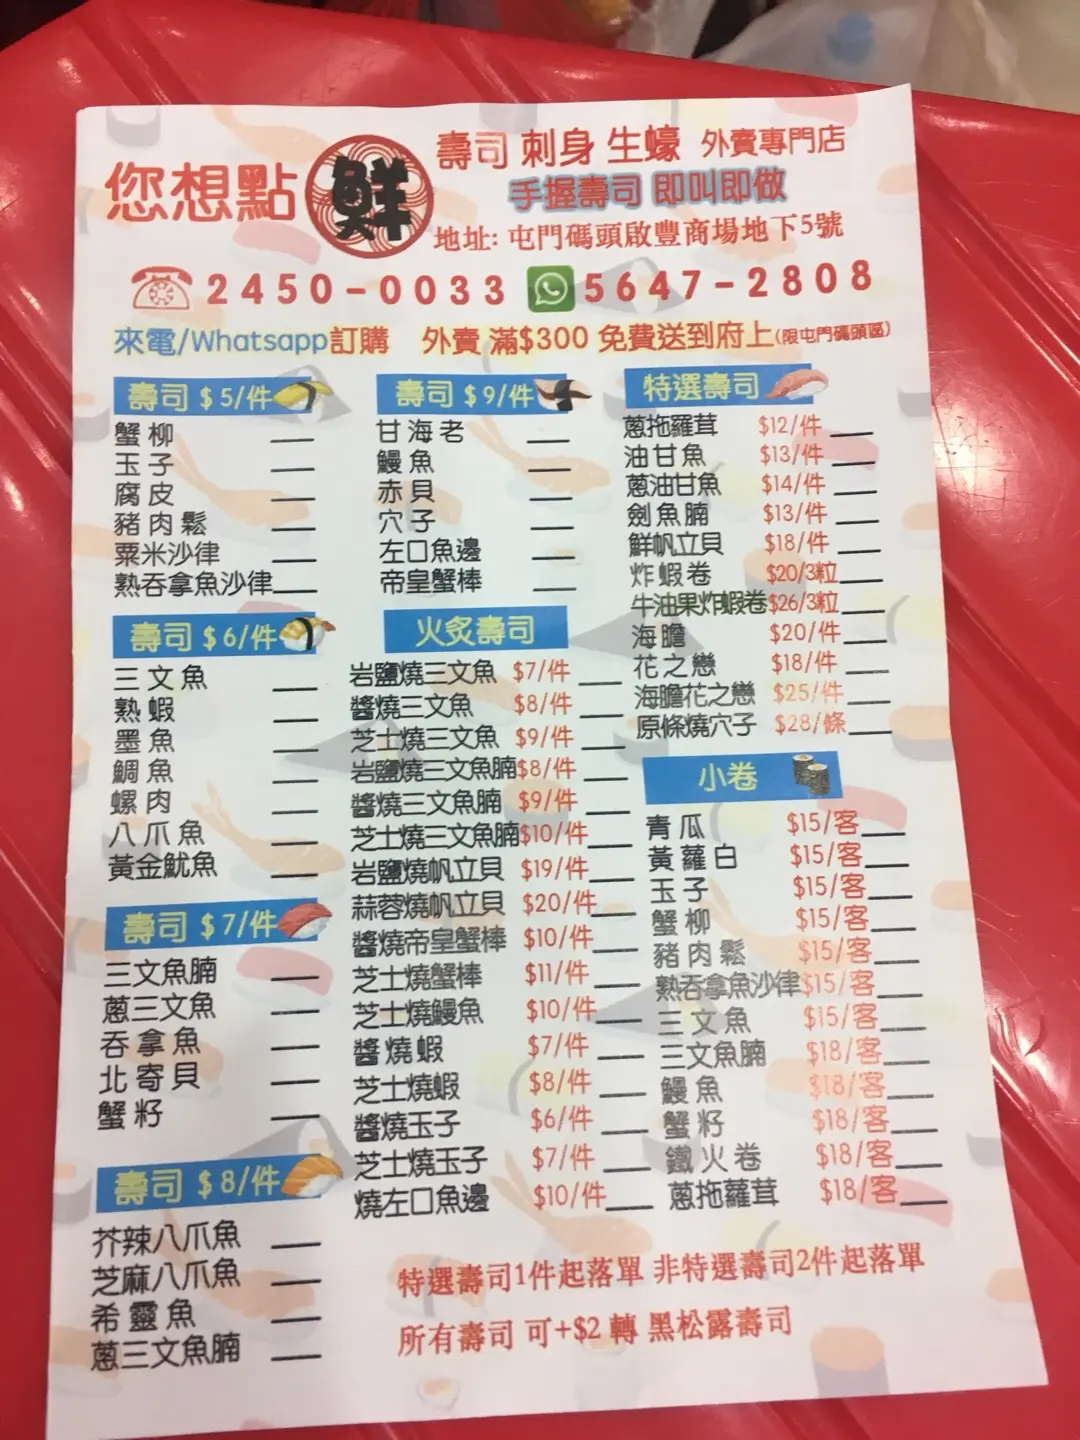 您想點 鮮
壽司 刺身 生蠔 外賣專門店
手握壽司 即叫即做
地址: 屯門碼頭啟豐商場地下5號
2450-0033 5647-2808
來電/Whatsapp訂購 外賣 滿$300 免費送到府上(限屯門碼頭區)
壽司 $5/件
蟹柳
玉子
腐皮
豬肉鬆
粟米沙律
熟吞拿魚沙律
壽司 $6/件
三文魚
熟蝦
墨魚
鯛魚
螺肉
八爪魚
黃金魷魚
壽司 $7/件
三文魚腩
蔥三文魚
吞拿魚
北寄貝
蟹籽
壽司 $8/件
芥辣八爪魚
芝麻八爪魚
希靈魚
蔥三文魚腩
壽司 $9/件
甘海老
鰻魚
赤貝
穴子
左口魚邊
帝皇蟹棒
火炙壽司
岩鹽燒三文魚 $7/件
醬燒三文魚 $8/件
芝士燒三文魚 $9/件
岩鹽燒三文魚腩$8/件
醬燒三文魚腩 $9/件
芝士燒三文魚腩$10/件
岩鹽燒帆立貝 $19/件
蒜蓉燒帆立貝 $20/件
醬燒帝皇蟹棒 $10/件
芝士燒蟹棒 $11/件
芝士燒鰻魚 $10/件
醬燒蝦 $7/件
芝士燒蝦 $8/件
醬燒玉子 $6/件
芝士燒玉子 $7/件
燒左口魚邊 $10/件
特選壽司
蔥拖羅茸 $12/件
油甘魚 $13/件
蔥油甘魚 $14/件
劍魚腩 $13/件
鮮帆立貝 $18/件
炸蝦卷 $20/3粒
牛油果炸蝦卷$26/3粒
海膽 $20/件
花之戀 $18/件
海膽花之戀 $25/件
原條燒穴子 $28/條
小卷
青瓜 $15/客
黃蘿白 $15/客
玉子 $15/客
蟹柳 $15/客
豬肉鬆 $15/客
熟吞拿魚沙律$15/客
三文魚 $15/客
三文魚腩 $18/客
鰻魚 $18/客
蟹籽 $18/客
鐵火卷 $18/客
蔥拖蘿茸 $18/客
特選壽司1件起落單 非特選壽司2件起落單
所有壽司 可+$2 轉 黑松露壽司